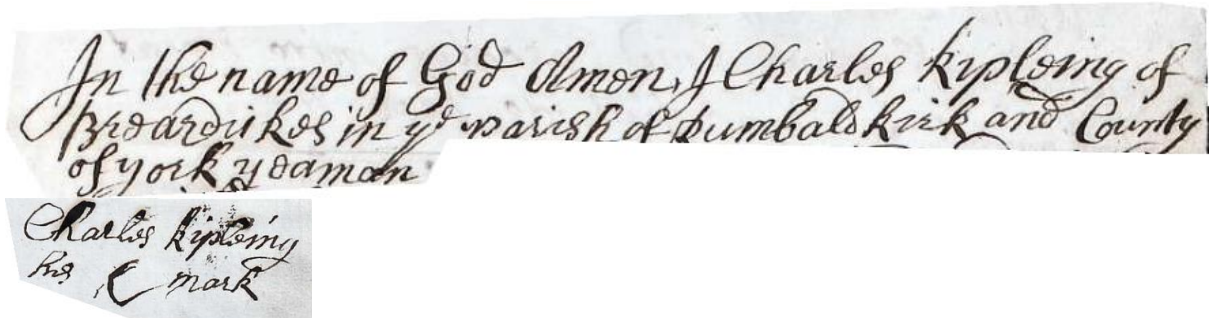 In the name of God Amen, I Charles Kipleing of
Breardikes in ye parish of Rumbaldkirk and County
of york yeaman
Charles Kipleing
his C mark